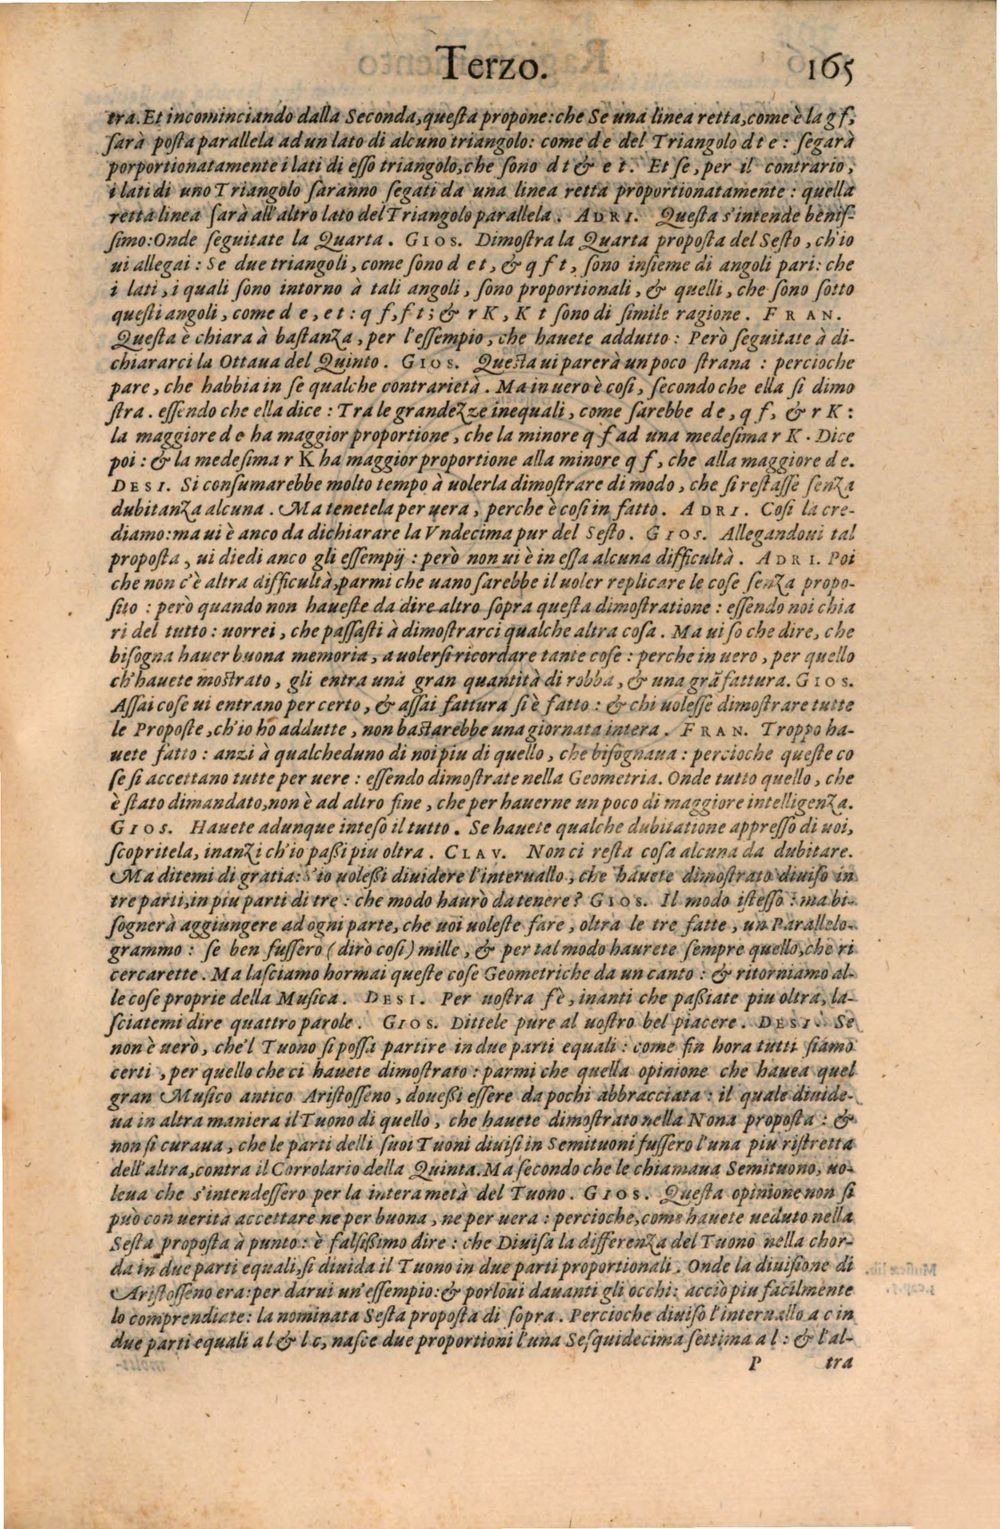 Terzo. 165
tra. Et incominciando dalla Seconda, questa propone: che Se una linea retta, come è la g f,
sarà posta parallela ad un lato di alcuno triangolo: come d e del Triangolo d t e: segarà
porportionatamente i lati di esso triangolo, che sono d t & e t. Et se, per il contrario,
i lati di uno Triangolo saranno segati da una linea retta proportionatamente: quella
retta linea sarà all'altro lato del Triangolo parallela. ADRI. Questa s'intende benis-
simo: Onde seguitate la Quarta. GIOS. Dimostra la Quarta proposta del Sesto, ch'io
ui allegai: Se due triangoli, come sono d e t, & q f t, sono insieme di angoli pari: che
i lati, i quali sono intorno à tali angoli, sono proportionali, & quelli, che sono sotto
questi angoli, come d e, e t: q f, f t; & r K, K t sono di simile ragione. FRAN.
Questa è chiara à bastanza, per l'essempio, che hauete addutto: Però seguitate à di-
chiararci la Ottaua del Quinto. GIOS. Questa ui parerà un poco strana: percioche
pare, che habbia in se qualche contrarietà. Ma in uero è cosi, secondo che ella si dimo
stra. essendo che ella dice: Tra le grandezze inequali, come sarebbe d e, q f, & r K:
la maggiore d e ha maggior proportione, che la minore q f ad una medesima r K. Dice
poi: & la medesima r K ha maggior proportione alla minore q f, che alla maggiore d e.
DESI. Si consumarebbe molto tempo à uolerla dimostrare di modo, che si restasse senza
dubitanza alcuna. Ma tenetela per uera, perche è cosi in fatto. ADRI. Cosi la cre-
diamo: ma ui è anco da dichiarare la Vndecima pur del Sesto. GIOS. Allegandoui tal
proposta, ui diedi anco gli essempij: però non ui è in essa alcuna difficultà. ADRI. Poi
che non c'è altra difficultà, parmi che uano sarebbe il uoler replicare le cose senza propo-
sito: però quando non haueste da dire altro sopra questa dimostratione: essendo noi chia
ri del tutto: uorrei, che passasti à dimostrarci qualche altra cosa. Ma ui so che dire, che
bisogna hauer buona memoria, a uolersi ricordare tante cose: perche in uero, per quello
ch'hauete mostrato, gli entra una gran quantità di robba, & una grã fattura. GIOS.
Assai cose ui entrano per certo, & assai fattura si è fatto: & chi uolesse dimostrare tutte
le Proposte, ch'io ho addutte, non bastarebbe una giornata intera. FRAN. Troppo ha-
uete fatto: anzi à qualcheduno di noi piu di quello, che bisognaua: percioche queste co
se si accettano tutte per uere: essendo dimostrate nella Geometria. Onde tutto quello, che
è stato dimandato, non è ad altro fine, che per hauerne un poco di maggiore intelligenza.
GIOS. Hauete adunque inteso il tutto. Se hauete qualche dubitatione appresso di uoi,
scopritela, inanzi ch'io paßi piu oltra. CLAV. Non ci resta cosa alcuna da dubitare.
Ma ditemi di gratia: S'io uoleßi diuidere l'interuallo, che hauete dimostrato diuiso in
tre parti, in piu parti di tre: che modo haurò da tenere? GIOS. Il modo istesso: ma bi-
sognerà aggiungere ad ogni parte, che uoi uoleste fare, oltra le tre fatte, un Parallelo-
grammo: se ben fussero (dirò cosi) mille, & per tal modo haurete sempre quello, che ri
cercarette. Ma lasciamo hormai queste cose Geometriche da un canto: & ritorniamo al-
le cose proprie della Musica. DESI. Per uostra fè, inanti che paßiate piu oltra, la-
sciatemi dire quattro parole. GIOS. Dittele pure al uostro bel piacere. DESI. Se
non è uerò, che'l Tuono si possa partire in due parti equali: come fin hora tutti siamo
certi, per quello che ci hauete dimostrato: parmi che quella opinione che hauea quel
gran Musico antico Aristosseno, doueßi essere da pochi abbracciata: il quale diuide-
ua in altra maniera il Tuono di quello, che hauete dimostrato nella Nona proposta: &
non si curaua, che le parti delli suoi Tuoni diuisi in Semituoni fussero l'una piu ristretta
dell'altra, contra il Corrolario della Quinta. Ma secondo che le chiamaua Semituono, uo-
leua che s'intendessero per la intera metà del Tuono. GIOS. Questa opinione non si
può con uerità accettare ne per buona, ne per uera: percioche, come hauete ueduto nella
Sesta proposta à punto: è falsißimo dire: che Diuisa la differenza del Tuono nella chor-
da in due parti equali, si diuida il Tuono in due parti proportionali. Onde la diuisione di
Aristosseno era: per darui un'essempio: & porloui dauanti gli occhi: acciò piu facilmente
lo comprendiate: la nominata Sesta proposta di sopra. Percioche diuiso l'interuallo a c in
due parti equali a l & l c, nasce due proportioni l'una Sesquidecima settima a l: & l'al-
P tra